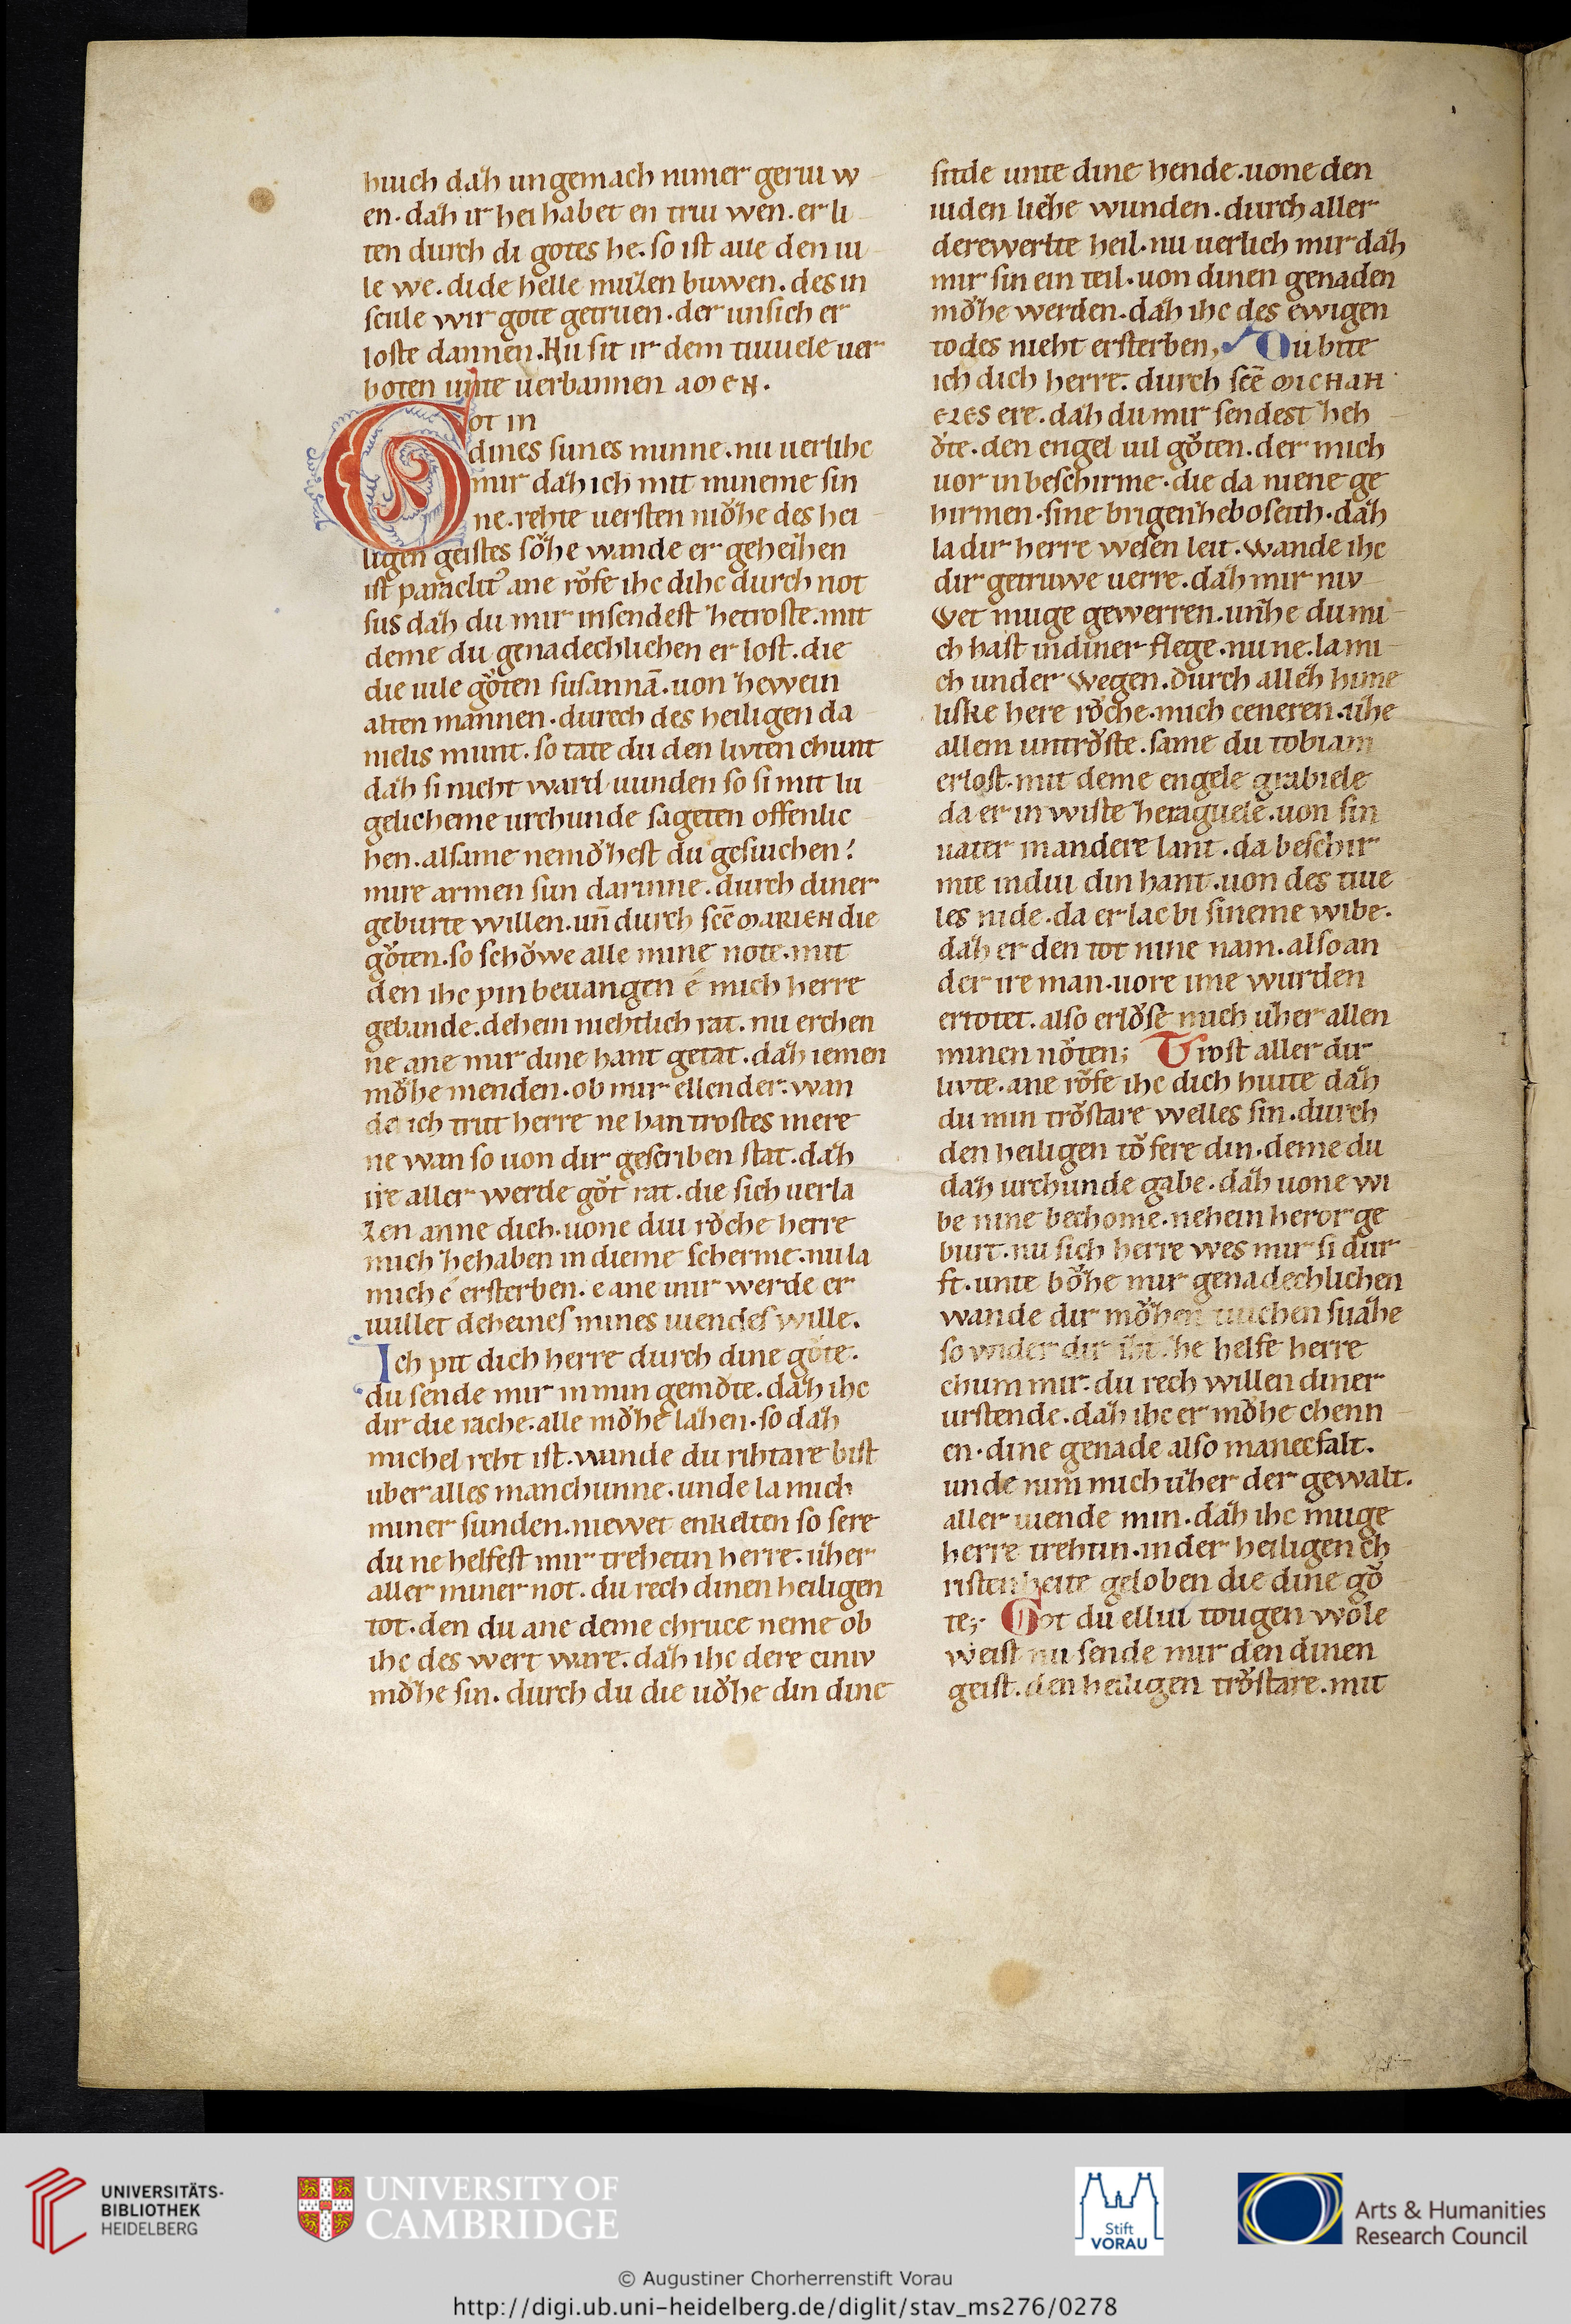 hiuch daʒ ungemach nimer geriu w
en. daʒ ir hei habet en triu wen. er li
ten durch di gotes he. so ist aue den iu
le we. di de helle muʒen buwen. des in
scule wir gote getruen. der unsich er
loste dannen. Nu sit ir dem tiuuele uer
boten unte uerbannen AMEN.
Got in
dines sunes minne. nu uerlihc
mir daʒ ich mit mineme sin
ne. rehte uersten mǒʒe des hei
ligen geistes sǒʒe wande er geheiʒen
ist paraclit᾿ ane rǒfe ihc dihc durch not
sus daʒ du mir insendest ʒetroste. mit
deme du genadechlichen er lost. die
die uile gǒten susannā. uon ʒewein
alten mannen. durch des heiligen da
nielis munt. so tate du den livten chunt
daʒ si nieht ward uunden so si mit lu
gelicheme urchunde sageten offenlic
hen. alsame nemǒhest du gesuichen?
mire armen sun darinne. durch diner
geburte willen. un̄ durch scē MARIEN die
gǒten. so schǒwe alle mine note. mit
den ihc pin beuangen é mich herre
gebinde. dehein niehtlich rat. nu erchen
ne ane mir dine hant getat. daʒ iemen
mǒʒe menden. ob mir ellender. wan
de ich trut herre ne han trostes mere
ne wan so uon dir gescriben stat. daʒ
ire aller werde gǒt rat. die sich uerla
ʒen anne dich. uone diu rǒche herre
mich ʒehaben in dieme scherme. nu la
mich é ersterben. e ane mir werde er
uullet deheines mines uiendes wille.
Ich pit dich herre durch dine gǒte.
du sende mir in min gemǒte. daʒ ihc
dir die rache. alle mǒʒe laʒen. so daʒ
michel reht ist. wande du rihtare bist
uber alles manchunne. unde la mich
miner sunden. niewet enkelten so sere
du ne helfest mir trehetin herre. uʒer
aller miner not. du rech dinen heiligen
tot. den du ane deme chruce neme ob
ihc des wert ware. daʒ ihc dere einiv
mǒʒe sin. durch du die uǒʒe din dine
sittde unte dine hende. uone den
iuden lieʒe wunden. durch aller
derewerlte heil. nu uerlich mir daʒ
mir sin ein teil. uon dinen genaden
mǒʒe werden. daʒ ihc des ewigen
todes nieht ersterben, Du bite
ich dich herre. durch scē MICHAH
ELES ere. daʒ du mir sendest ʒeh
ǒte. den engel uil gǒten. der mich
uor in beschirme. die da niene ge
hirmen. sine brigen ʒeboseith. daʒ
la dir herre wesen leit. wande ihc
dir getruwe uerre. daʒ mir niv
wet muge gewerren. unʒe du mi
ch hast indiner flege. nu ne. la mi
ch under wegen. durch alleʒ hime
liske here rǒche. mich ceneren. uʒe
allem untrǒste. same du tobiam
erlost. mit deme engele grabiele
da er in wiste ʒeraguele. uon sin
uater in andere lant. da beschir
mte in diu din hant. uon des tiue
les nide. da er lac bi sineme wibe.
daʒ er den tot nine nam. also an
der ire man. uore ime wurden
ertotet. also erlǒse mich uʒer allen
minen nǒten; Trost aller dir
livte. ane rǒfe ihc dich hiute daʒ
du min trǒstare welles sin. durch
den heiligen tǒfere din. deme du
daʒ urchunde gabe. daʒ uone wi
be nine bechome. nehein herorge
burt. nu sich herre wes mir si dur
ft. unte bǒʒe mir genadechlichen
wande dir mǒʒen uuichen suaʒe
so wider dir ist. ʒe helfe herre
chum mir. du rech willen diner
urstende. daʒ ihc er mǒʒe chenn
en. dine genade also manecfalt.
unde nim mich uʒer der gewalt.
aller uiende min. daʒ ihc muge
herre trehtin. in der heiligen ch
ristenheite geloben die dine gǒ
te;. Got du elliu tougen wole
weist nu sende mir den dinen
geist. den heiligen trǒstare. mit
UNIVERSITÄTS-
BIBLIOTHEK
HEIDELBERG
UNIVERSITY OF
CAMBRIDGE
Stift
VORAU
Arts & Humanities
Research Council
© Augustiner Chorherrenstift Vorau
http://digi.ub.uni-heidelberg.de/diglit/stav_ms276/0278